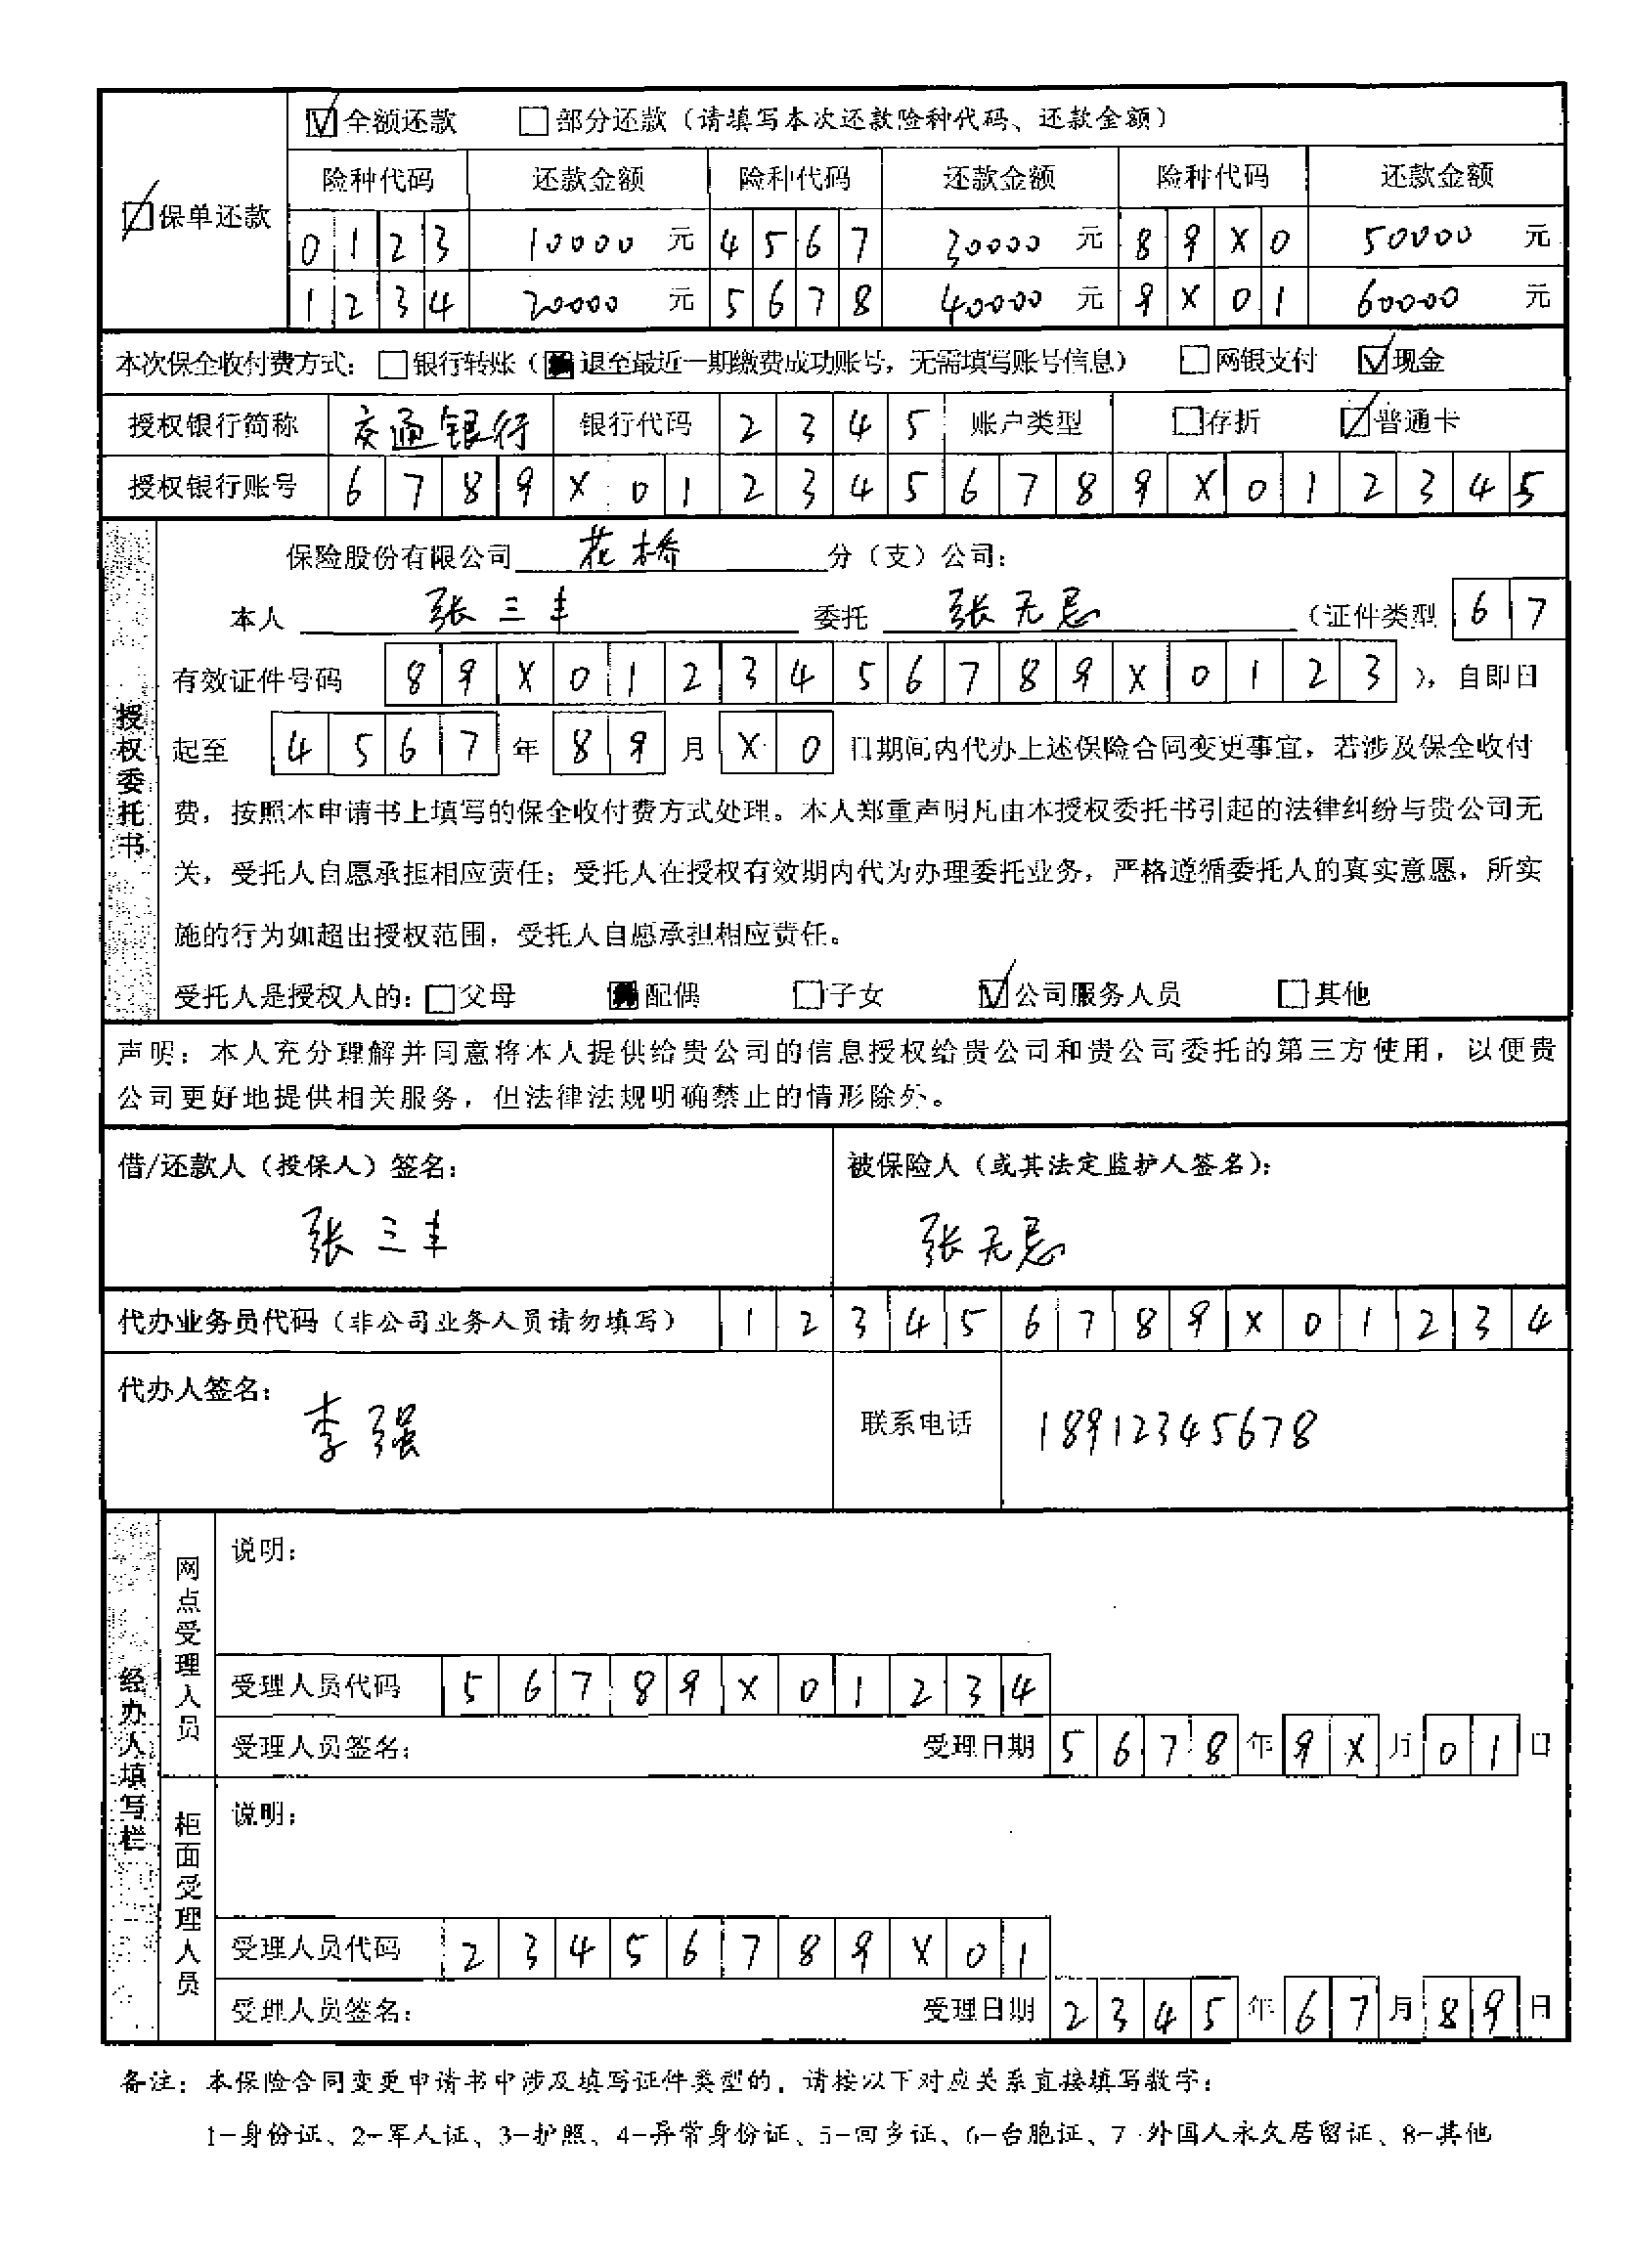 ☑全额还款 □部分还款（请填写本次还款险种代码、还款金额）
险种代码 还款金额 险种代码 还款金额 险种代码 还款金额
☑保单还款
0123 10000 元 4567 30000 元 89X0 50000 元
1234 20000 元 5678 40000 元 9X01 60000 元
本次保全收付费方式：□银行转账（■退至最近一期缴费成功账号，无需填写账号信息） □网银支付 ☑现金
授权银行简称 交通银行 银行代码 2345 账户类型 □存折 ☑普通卡
授权银行账号 6789X0123456789X012345
授权委托书
保险股份有限公司 花桥 分（支）公司：
本人 张三丰 委托 张无忌 （证件类型 67
有效证件号码 89X0123456789X0123 ），自即日
起至 4567 年 89 月 X0 日期间内代办上述保险合同变更事宜，若涉及保全收付
费，按照本申请书上填写的保全收付费方式处理。本人郑重声明凡由本授权委托书引起的法律纠纷与贵公司无
关，受托人自愿承担相应责任；受托人在授权有效期内代为办理委托业务，严格遵循委托人的真实意愿，所实
施的行为如超出授权范围，受托人自愿承担相应责任。
受托人是授权人的：□父母 ■配偶 □子女 ☑公司服务人员 □其他
声明：本人充分理解并同意将本人提供给贵公司的信息授权给贵公司和贵公司委托的第三方使用，以便贵
公司更好地提供相关服务，但法律法规明确禁止的情形除外。
借/还款人（投保人）签名： 被保险人（或其法定监护人签名）：
张三丰 张无忌
代办业务员代码（非公司业务人员请勿填写） 123456789X01234
代办人签名： 李强 联系电话 18912345678
经办人填写栏
网点受理人员
说明：
受理人员代码 56789X01234
受理人员签名： 受理日期 5678 年 9X 月 01 日
柜面受理人员
说明：
受理人员代码 23456789X01
受理人员签名： 受理日期 2345 年 67 月 89 日
备注：本保险合同变更申请书中涉及填写证件类型的，请按以下对应关系直接填写数字：
1-身份证、2-军人证、3-护照、4-异常身份证、5-回乡证、6-台胞证、7-外国人永久居留证、8-其他